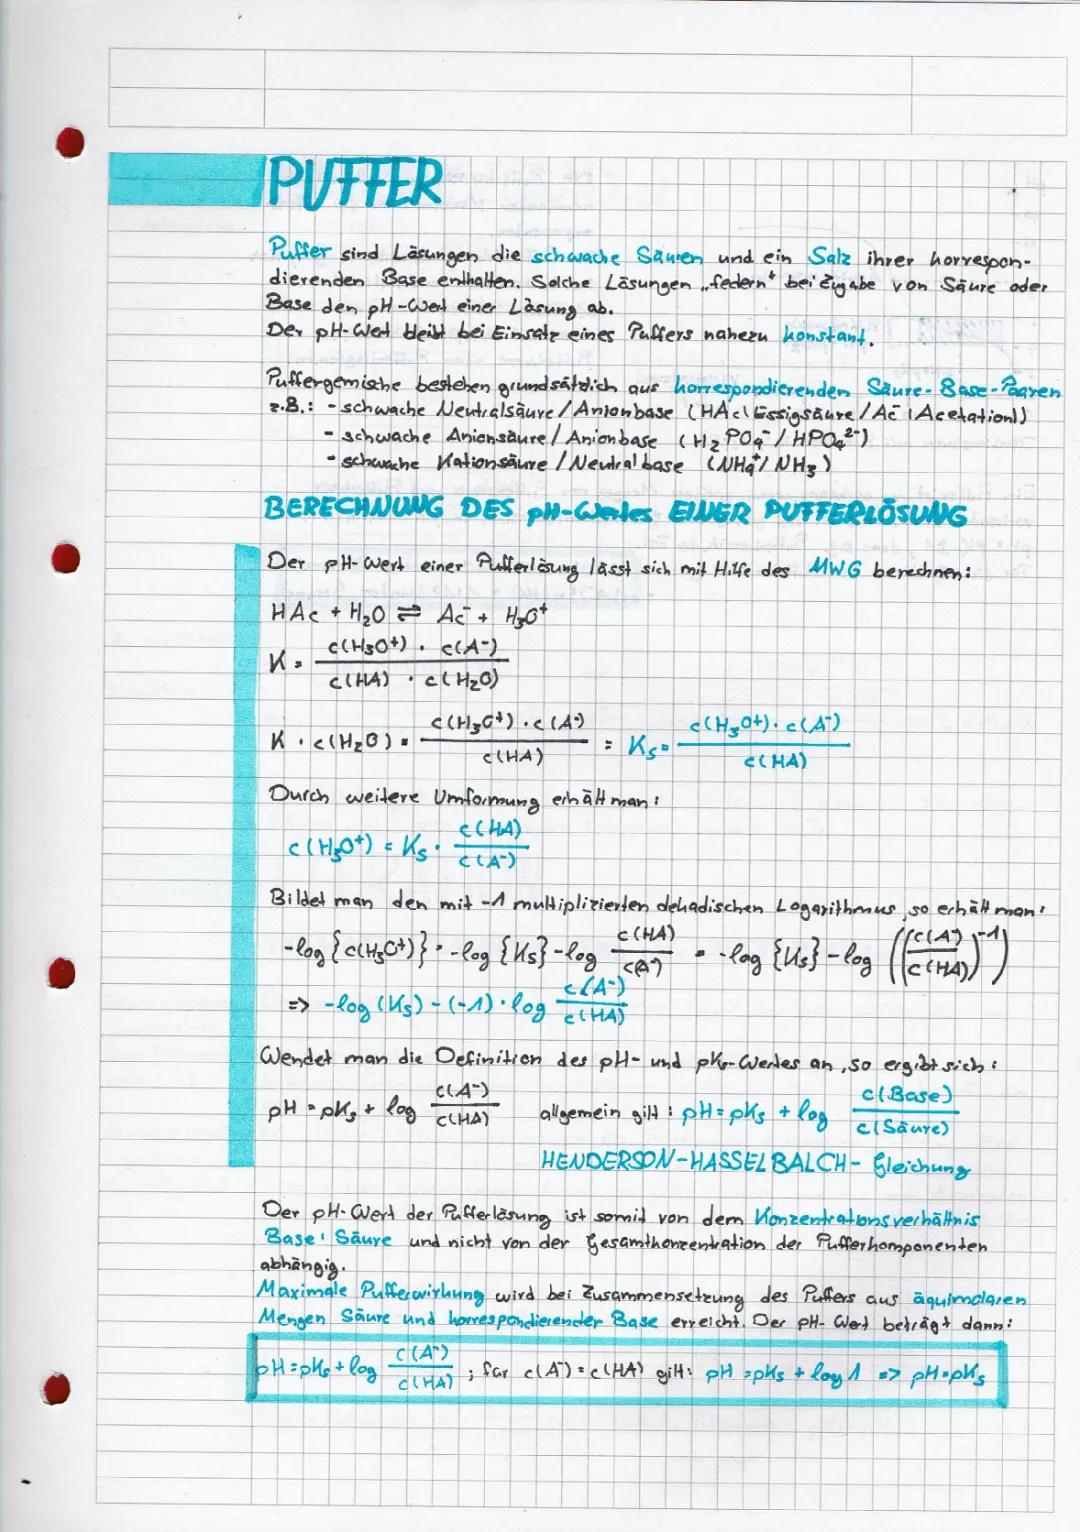 PUFFER
Puffer sind Lösungen die schwache Säuren und ein Salz ihrer korrespon-
dierenden Base enthalten. Solche Lösungen „federn" bei Zugabe von Säure oder
Base den pH-Wert einer Lösung ab.
Der pH-Wert bleibt bei Einsatz eines Puffers nahezu konstant.
Puffergemische bestehen grundsätzlich aus korrespondierenden Säure-Base-Paaren
z.B.: - schwache Neutralsäure/Anionbase (HAc(Essigsäure/Ac⁻(Acetation))
- schwache Anionsäure/Anionbase (H₂PO₄⁻/HPO₄²⁻)
- schwache Kationsäure/Neutralbase (NH₄⁺/NH₃)
BERECHNUNG DES pH-Wertes EINER PUFFERLÖSUNG
Der pH-Wert einer Pufferlösung lässt sich mit Hilfe des MWG berechnen:
HAc + H₂O ⇌ Ac⁻ + H₃O⁺
K = c(H₃O⁺) · c(A⁻) / c(HA) · c(H₂O)
K · c(H₂O) = c(H₃O⁺) · c(A⁻) / c(HA) = Kₛ = c(H₃O⁺) · c(A⁻) / c(HA)
Durch weitere Umformung erhält man:
c(H₃O⁺) = Kₛ · c(HA) / c(A⁻)
Bildet man den mit -1 multiplizierten dekadischen Logarithmus, so erhält man:
-log {c(H₃O⁺)} = -log {Kₛ} - log c(HA) / c(A⁻) = -log {Kₛ} - log ((c(A⁻) / c(HA))⁻¹)
=> -log (Kₛ) - (-1) · log c(A⁻) / c(HA)
Wendet man die Definition des pH- und pKₛ-Wertes an, so ergibt sich:
pH = pKₛ + log c(A⁻) / c(HA) allgemein gilt: pH = pKₛ + log c(Base) / c(Säure)
HENDERSON-HASSELBALCH-Gleichung
Der pH-Wert der Pufferlösung ist somit von dem Konzentrationsverhältnis
Base : Säure und nicht von der Gesamtkonzentration der Pufferkomponenten
abhängig.
Maximale Pufferwirkung wird bei Zusammensetzung des Puffers aus äquimolaren
Mengen Säure und korrespondierender Base erreicht. Der pH-Wert beträgt dann:
pH = pKₛ + log c(A⁻) / c(HA) ; für c(A⁻) = c(HA) gilt: pH = pKₛ + log 1 => pH = pKₛ